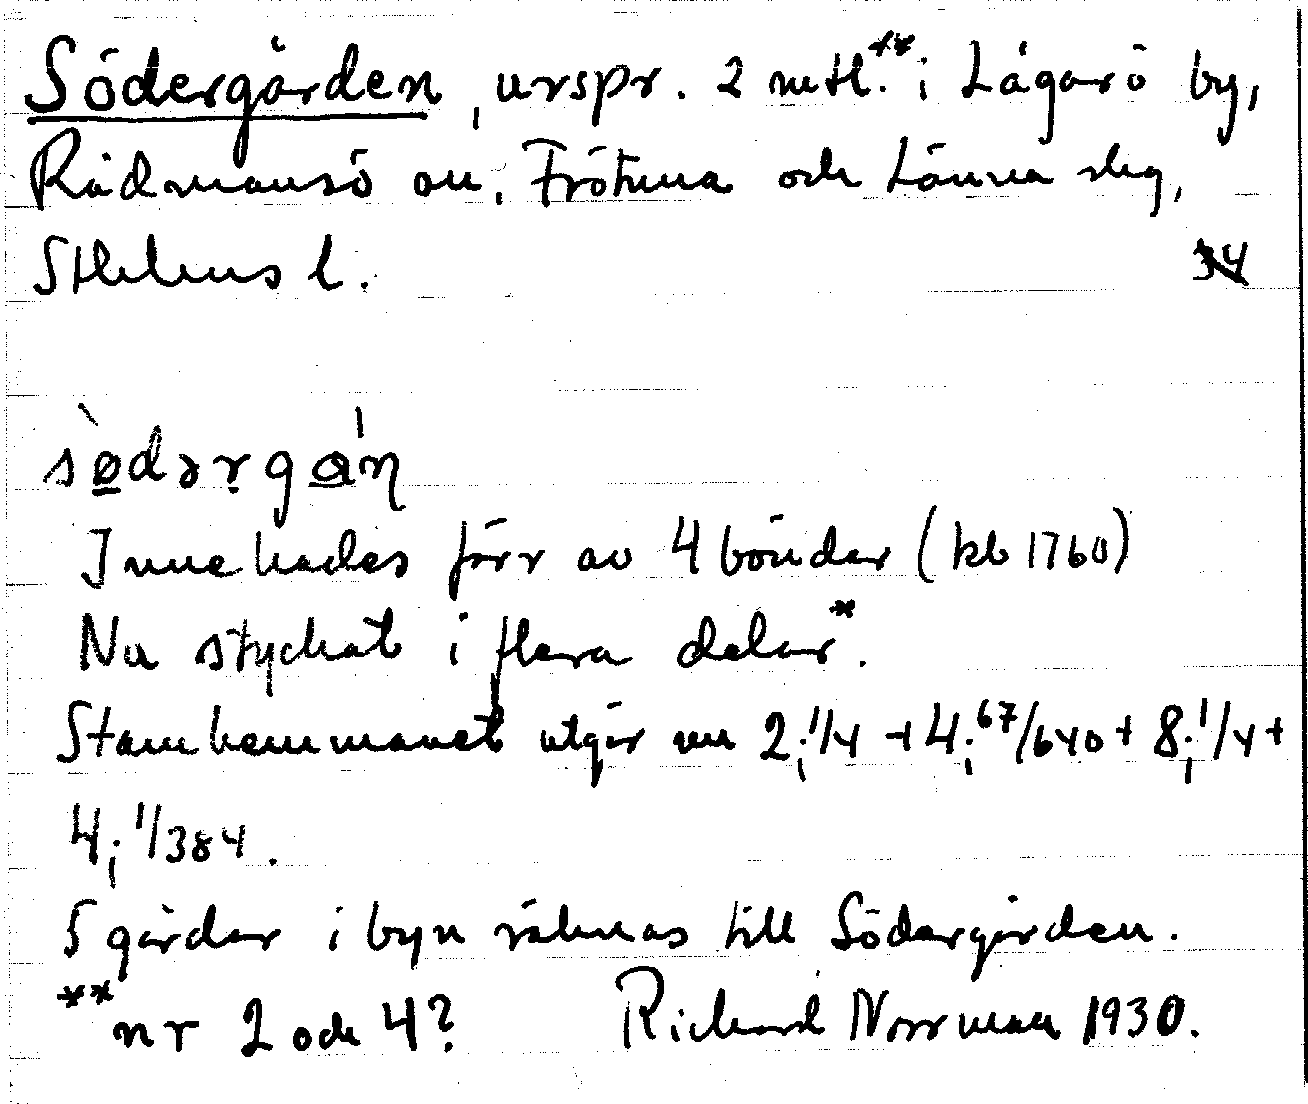 Södergården, urspr. 2 mtl.** i Lågarö by,
Rådmansö sn, Frötuna och Länna slg,
Sthlms l.
sø̀dərgán
Innehades förr av 4 bönder (kb 1760)
Nu styckat i flera delar*.
Stamhemmanet utgör nu 2;1/4 + 4;67/640 + 8;1/4 +
4;1/384.
5 gårdar i byn räknas till Södergården.
**nr 2 och 4? Richard Norrman 1930.